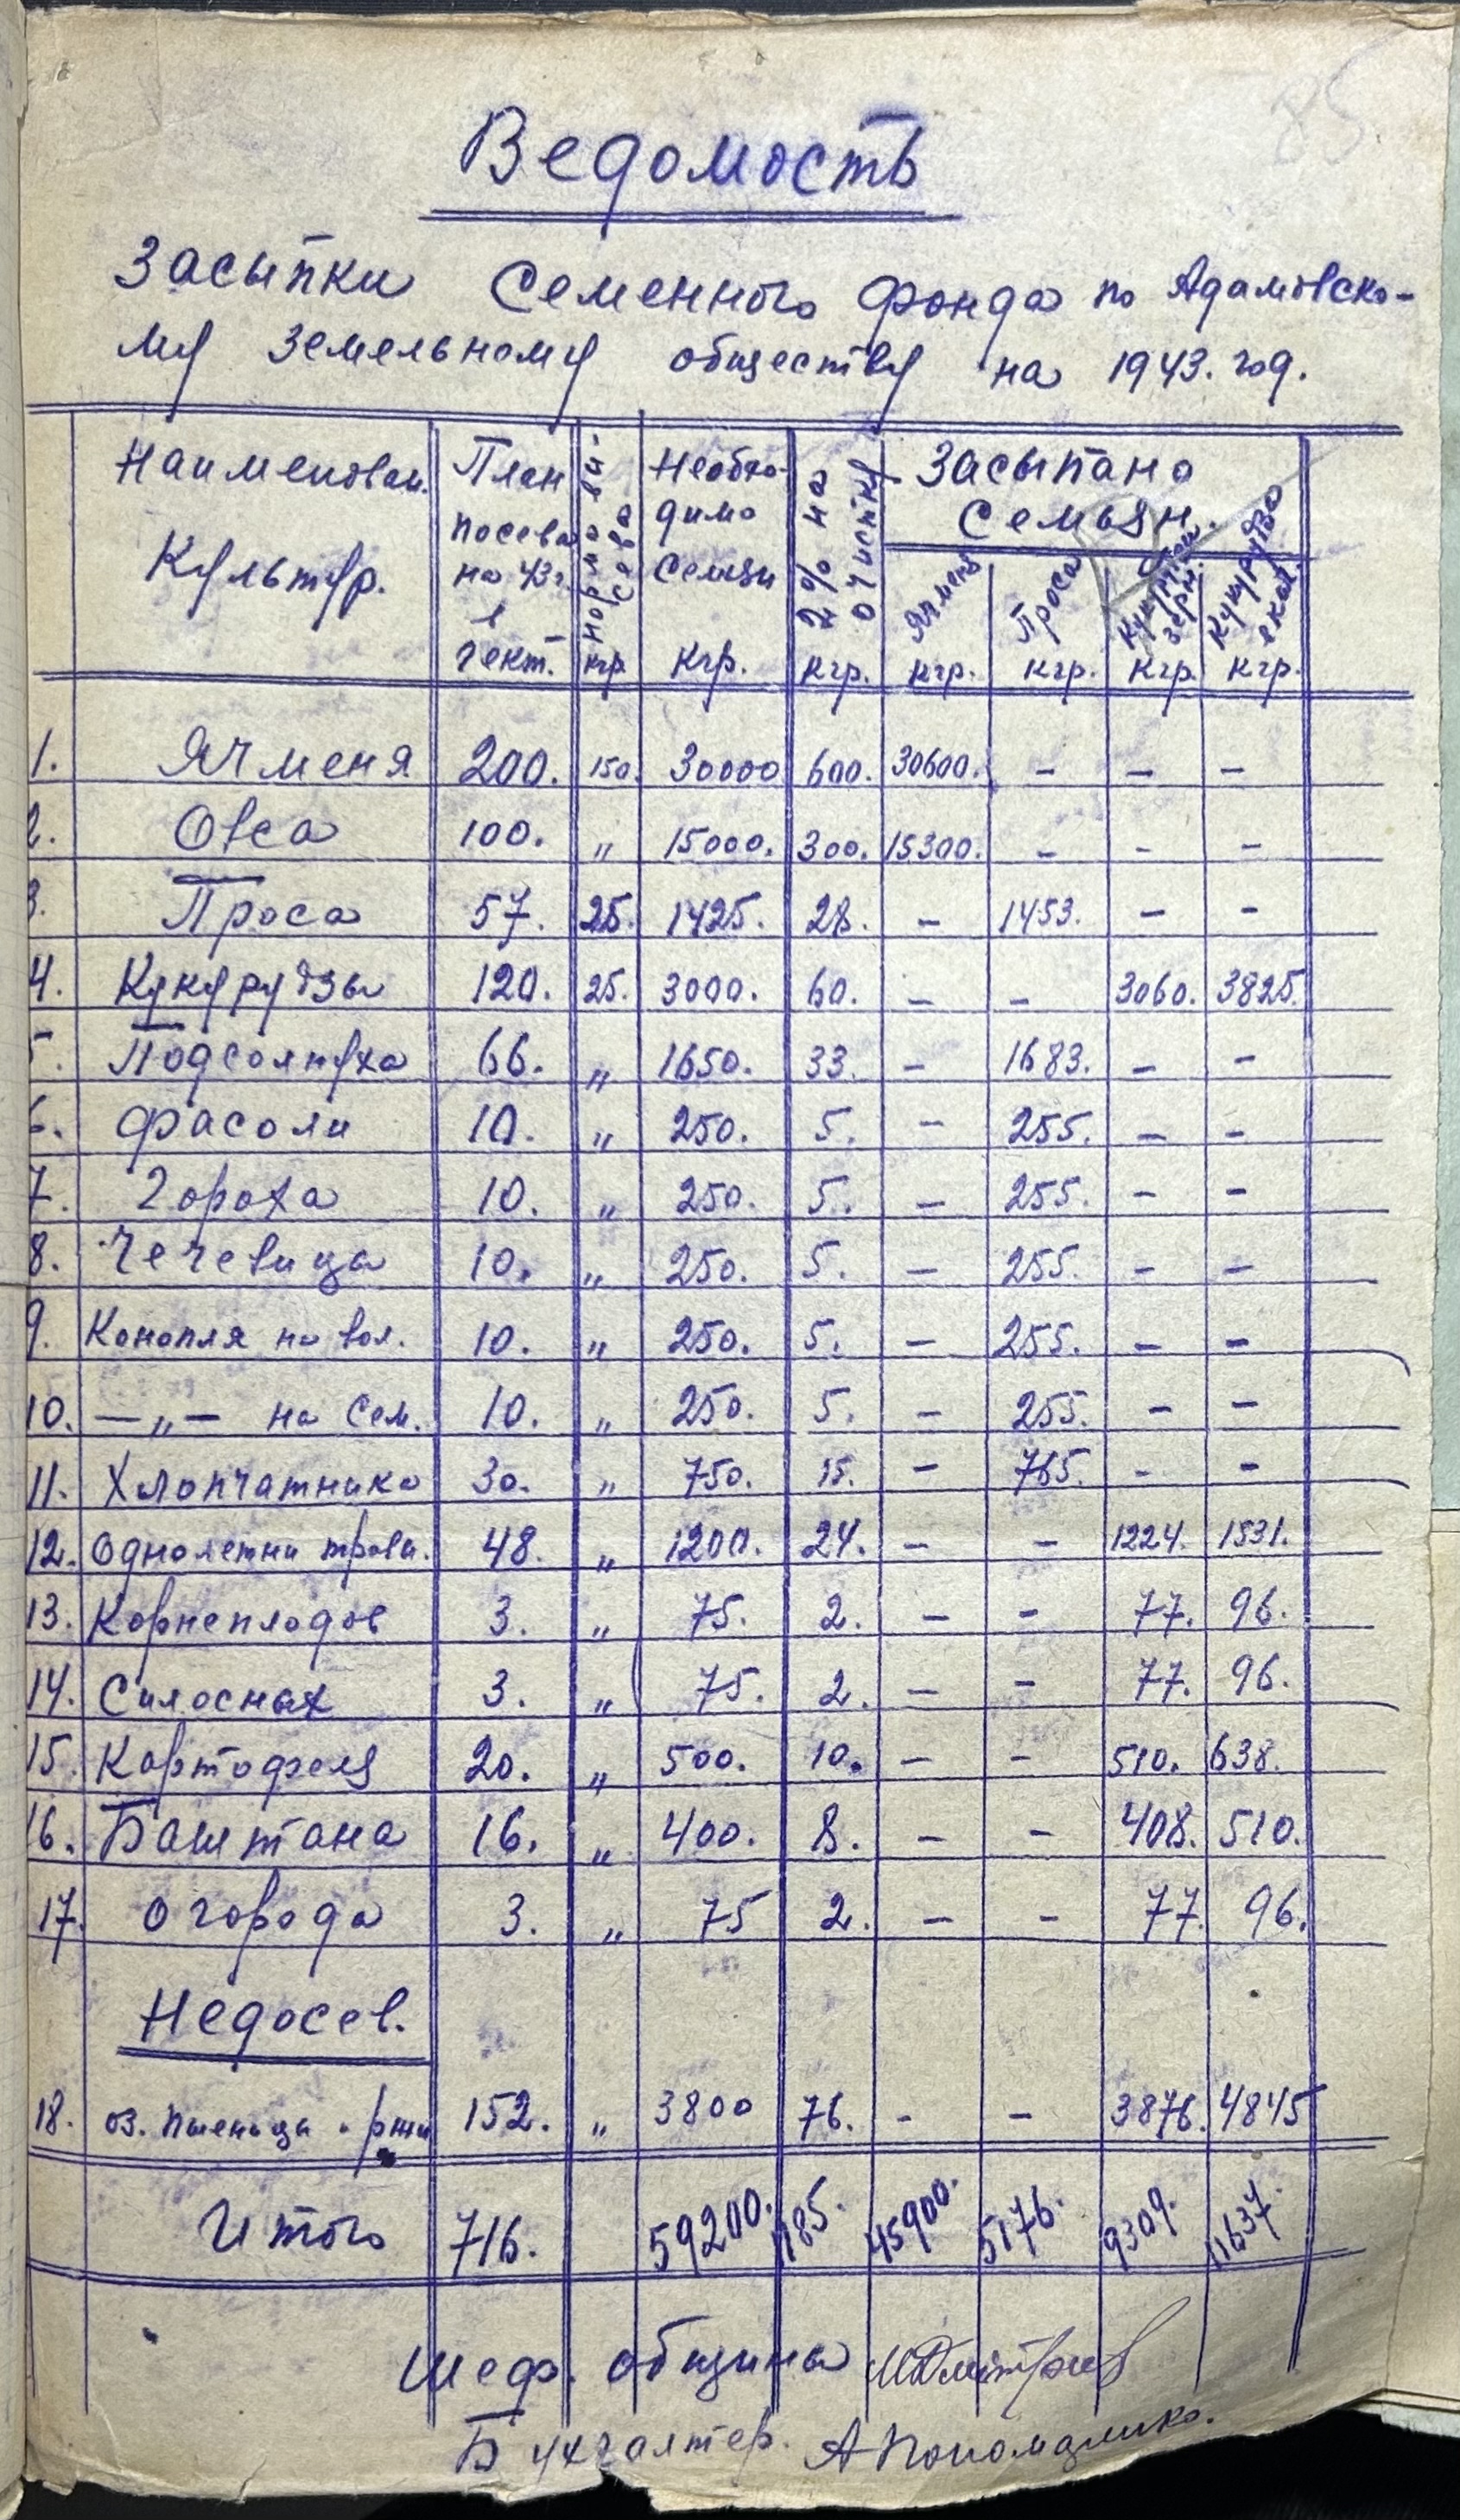 85
Ведомость
Засыпки Семенного фонда по Адамовско-
му земельному обществу на 1943. год.
Наименован. Культур. | План посева на 43 г. в гект. | норма вы-сева кгр. | Необхо-димо Семян Кгр. | 2% на очистку кгр. | Засыпано Семьян.
Ячменя кгр. | Проса кгр. | Кукурузы зерн. кгр. | Кукурудза в кач. кгр.
1. Ячменя 200. 150. 30000 600. 30600. – – –
2. Овса 100. „ 15000. 300. 15300. – – –
3. Проса 57. 25. 1425. 28. – 1453. – –
4. Кукурудзы 120. 25. 3000. 60. – – 3060. 3825.
5. Подсолнуха 66. „ 1650. 33. – 1683. – –
6. Фасоли 10. „ 250. 5. – 255. – –
7. Гороха 10. „ 250. 5. – 255. – –
8. Чечевица 10. „ 250. 5. – 255. – –
9. Конопля на вол. 10. „ 250. 5. – 255. – –
10. –„– на Сем. 10. „ 250. 5. – 255. – –
11. Хлопчатника 30. „ 750. 15. – 765. – –
12. Однолетни трави. 48. „ 1200. 24. – – 1224. 1531.
13. Корнеплодов 3. „ 75. 2. – – 77. 96.
14. Силосных 3. „ 75. 2. – – 77. 96.
15. Картофеля 20. „ 500. 10. – – 510. 638.
16. Баштана 16. „ 400. 8. – – 408. 510.
17. Огорода 3. „ 75 2. – – 77. 96.
Недосев.
18. оз. пшеница и ржи 152. „ 3800 76. – – 3876. 4845
Итого 716. 59200. 1185. 45900. 5176. 9309. 11637.
Шеф. общины МДмитриев
Бухгалтер. АПономаренко.